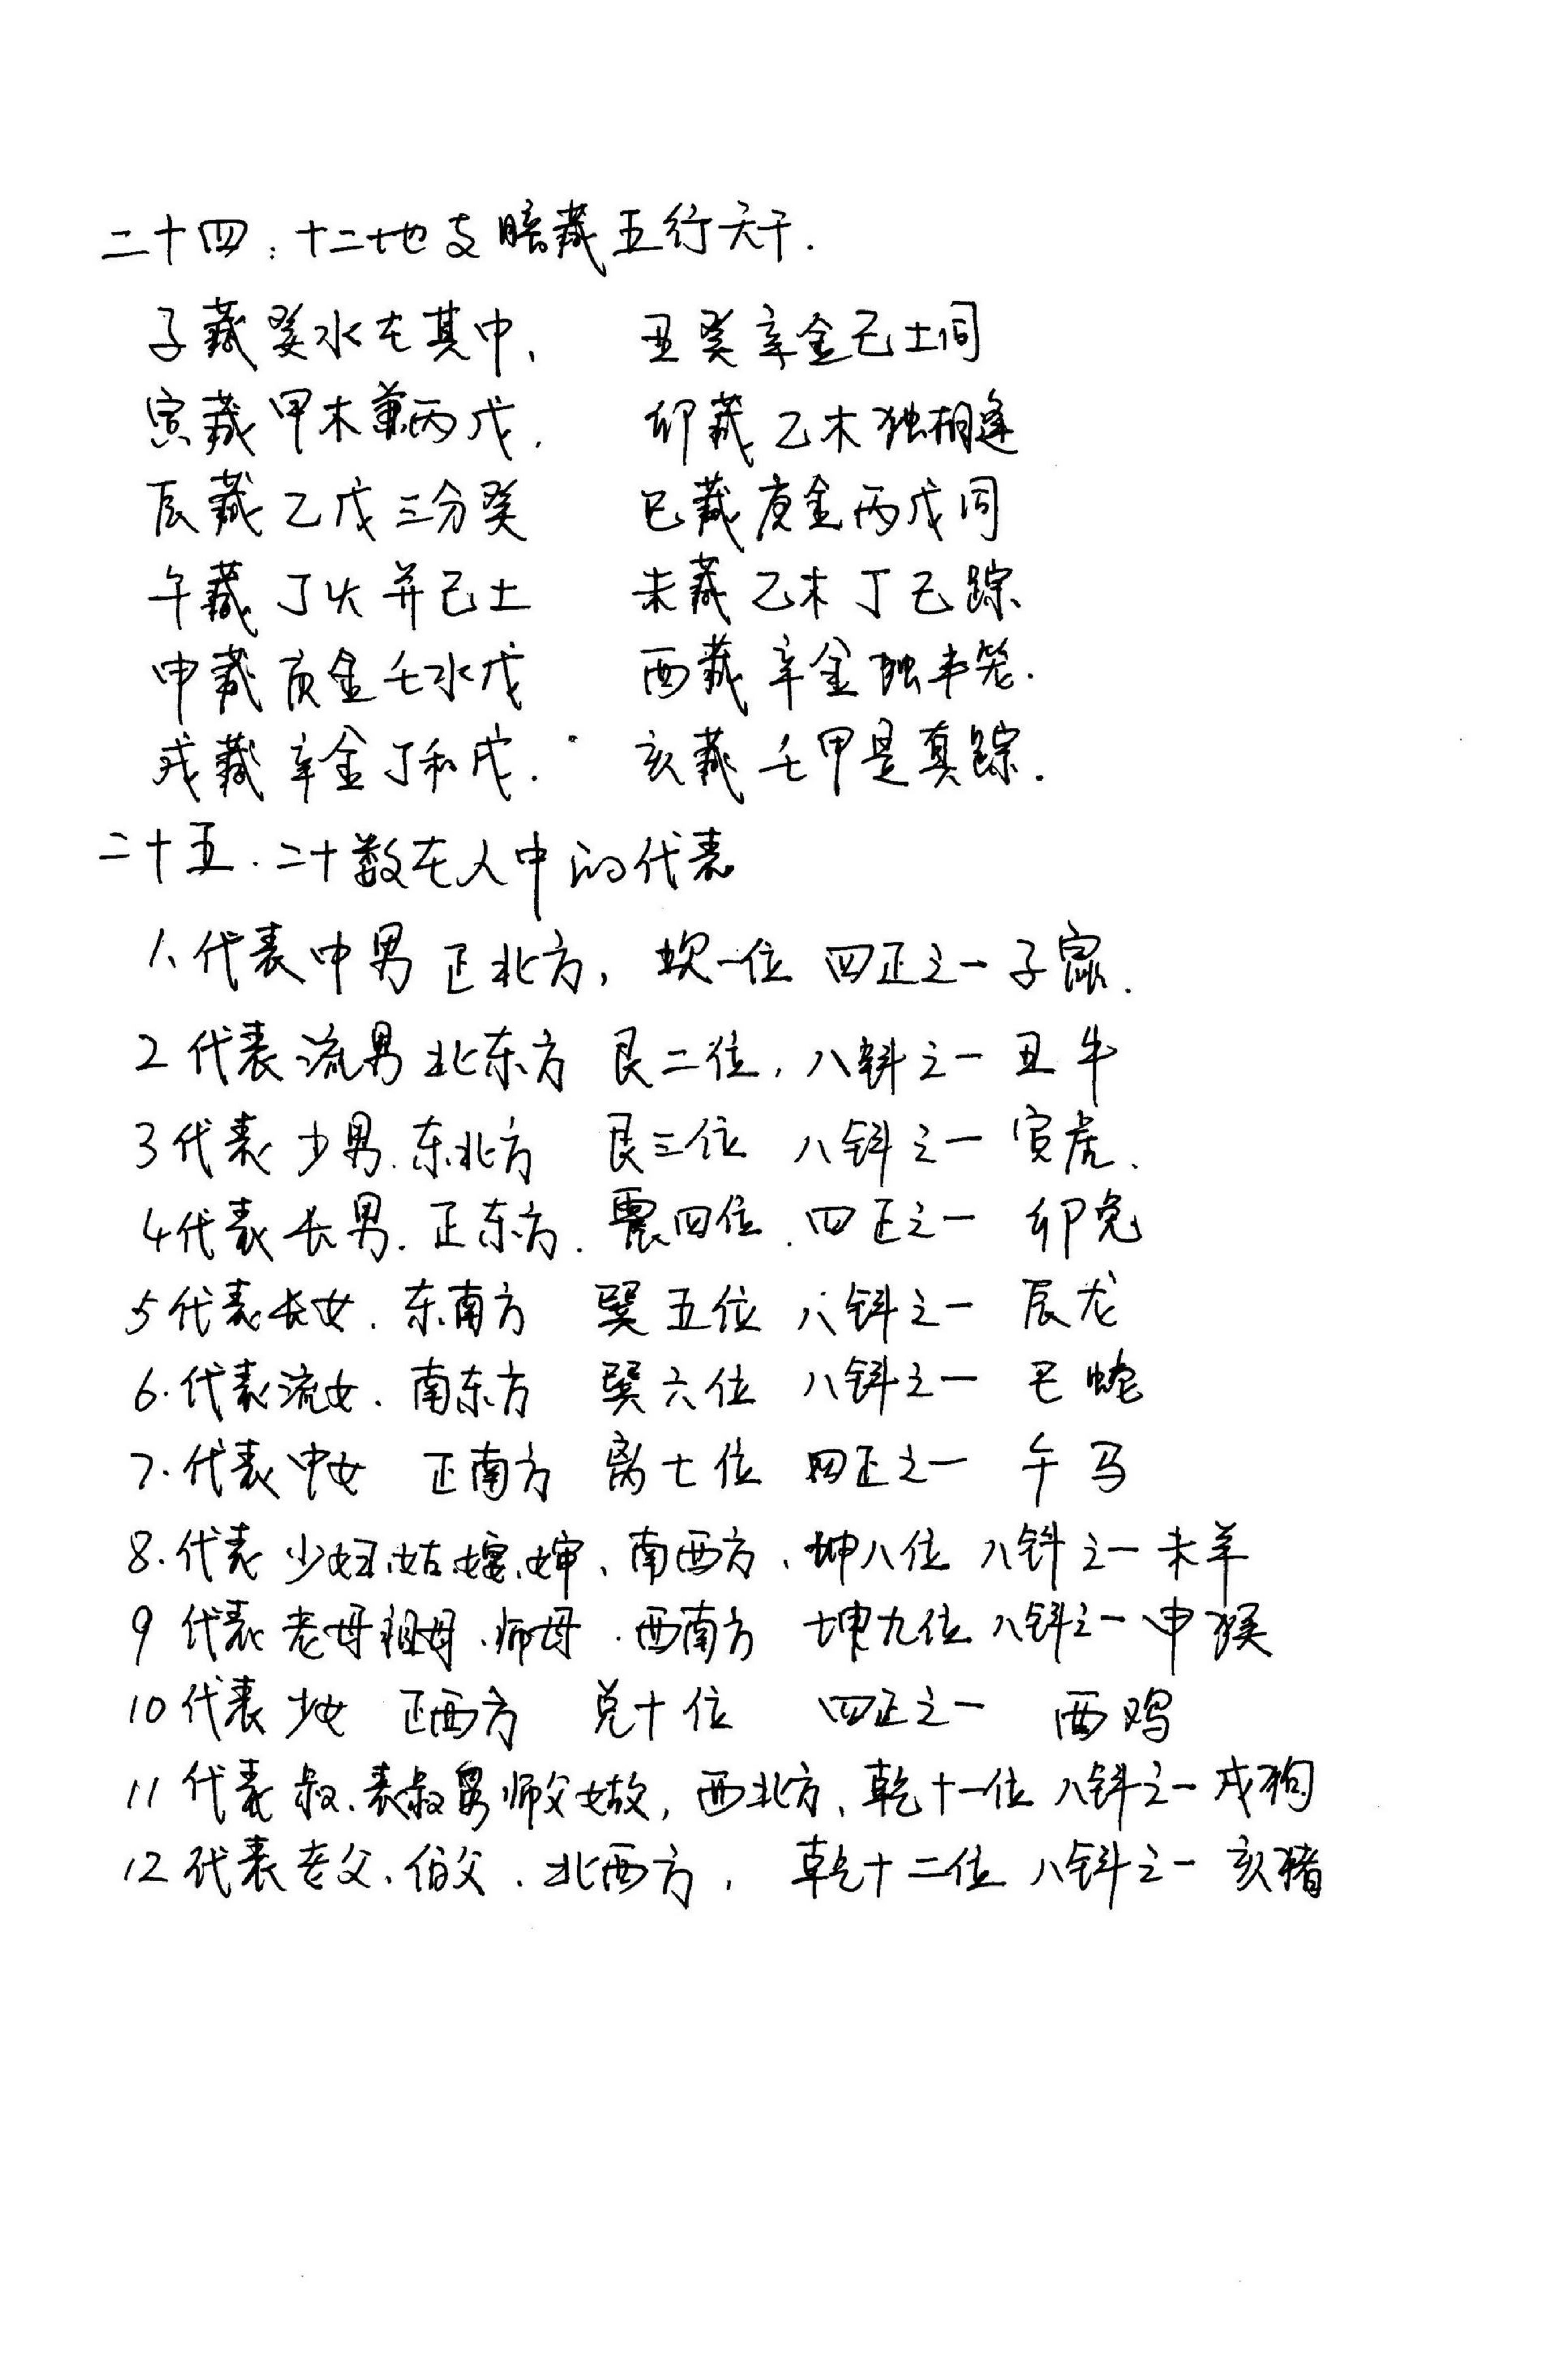 二十四：十二地支暗藏五行天干.
子藏癸水在其中、 丑癸辛金己土同
寅藏甲木兼丙戊. 卯藏乙木独相逢
辰藏乙戊三分癸 巳藏庚金丙戊同
午藏丁火并己土 未藏乙木丁己踪、
申藏庚金壬水戊 酉藏辛金独丰茏.
戌藏辛金丁和戊. 亥藏壬甲是真踪.
二十五.二十数在人中的代表
1、代表中男正北方, 坎一位 四正之一子鼠.
2代表流男北东方 艮二位, 八斜之一 丑牛
3代表少男.东北方 艮三位 八斜之一 寅虎、
4代表长男.正东方. 震四位.四正之一 卯兔
5代表长女.东南方 巽五位 八斜之一 辰龙
6.代表流女.南东方 巽六位 八斜之一 巳蛇
7.代表中女 正南方 离七位 四正之一 午马
8.代表少妇.姑.嫂.婶、南西方、坤八位 八斜之一未羊
9代表老母祖母.师母.西南方 坤九位 八斜之一申猴
10代表少女 正西方 兑十位 四正之一 酉鸡
11代表叔、表叔舅师父, 西北方、乾十一位 八斜之一戌狗
12代表老父、伯父.北西方, 乾十二位 八斜之一 亥猪